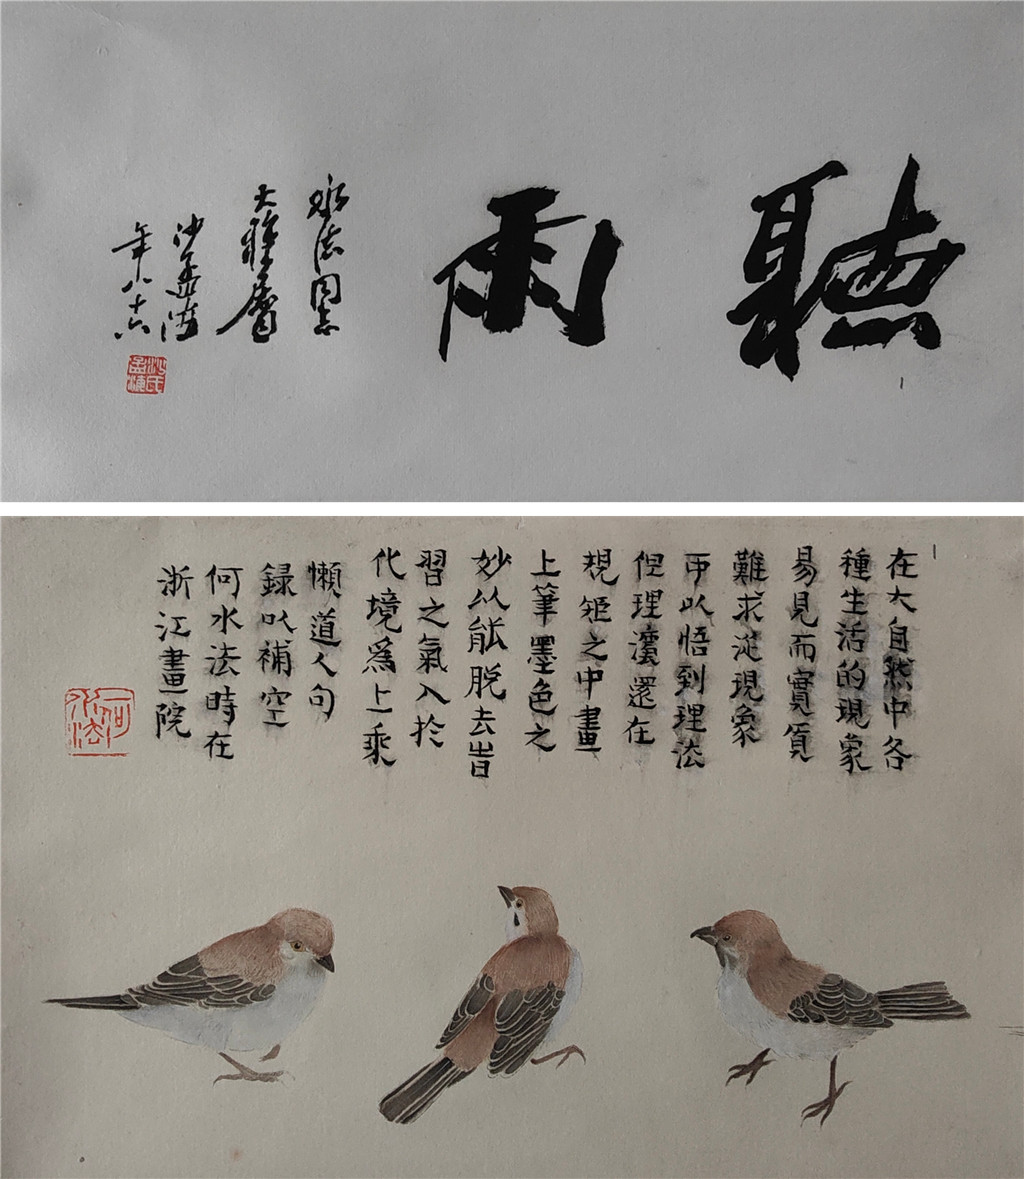 聽雨
水法同志
大雅屬
沙孟海
年八十六
沙氏孟海
在大自然中各
種生活的現象
易見而實質
難求從現象
中以悟到理法
但理法還在
規矩之中畫
上筆墨色之
妙以能脫去昔
習之氣入於
化境爲上乘
懶道人句
録以補空
何水法時在
浙江畫院
何水法